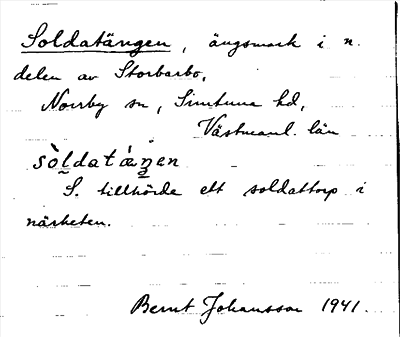 Soldatängen, ängsmark i n.
delen av Storbarbo,
Norrby sn, Simtuna hd,
Västmanl. län
sòldatáŋen
S. tillhörde ett soldattorp i
närheten.
Bernt Johansson 1941.